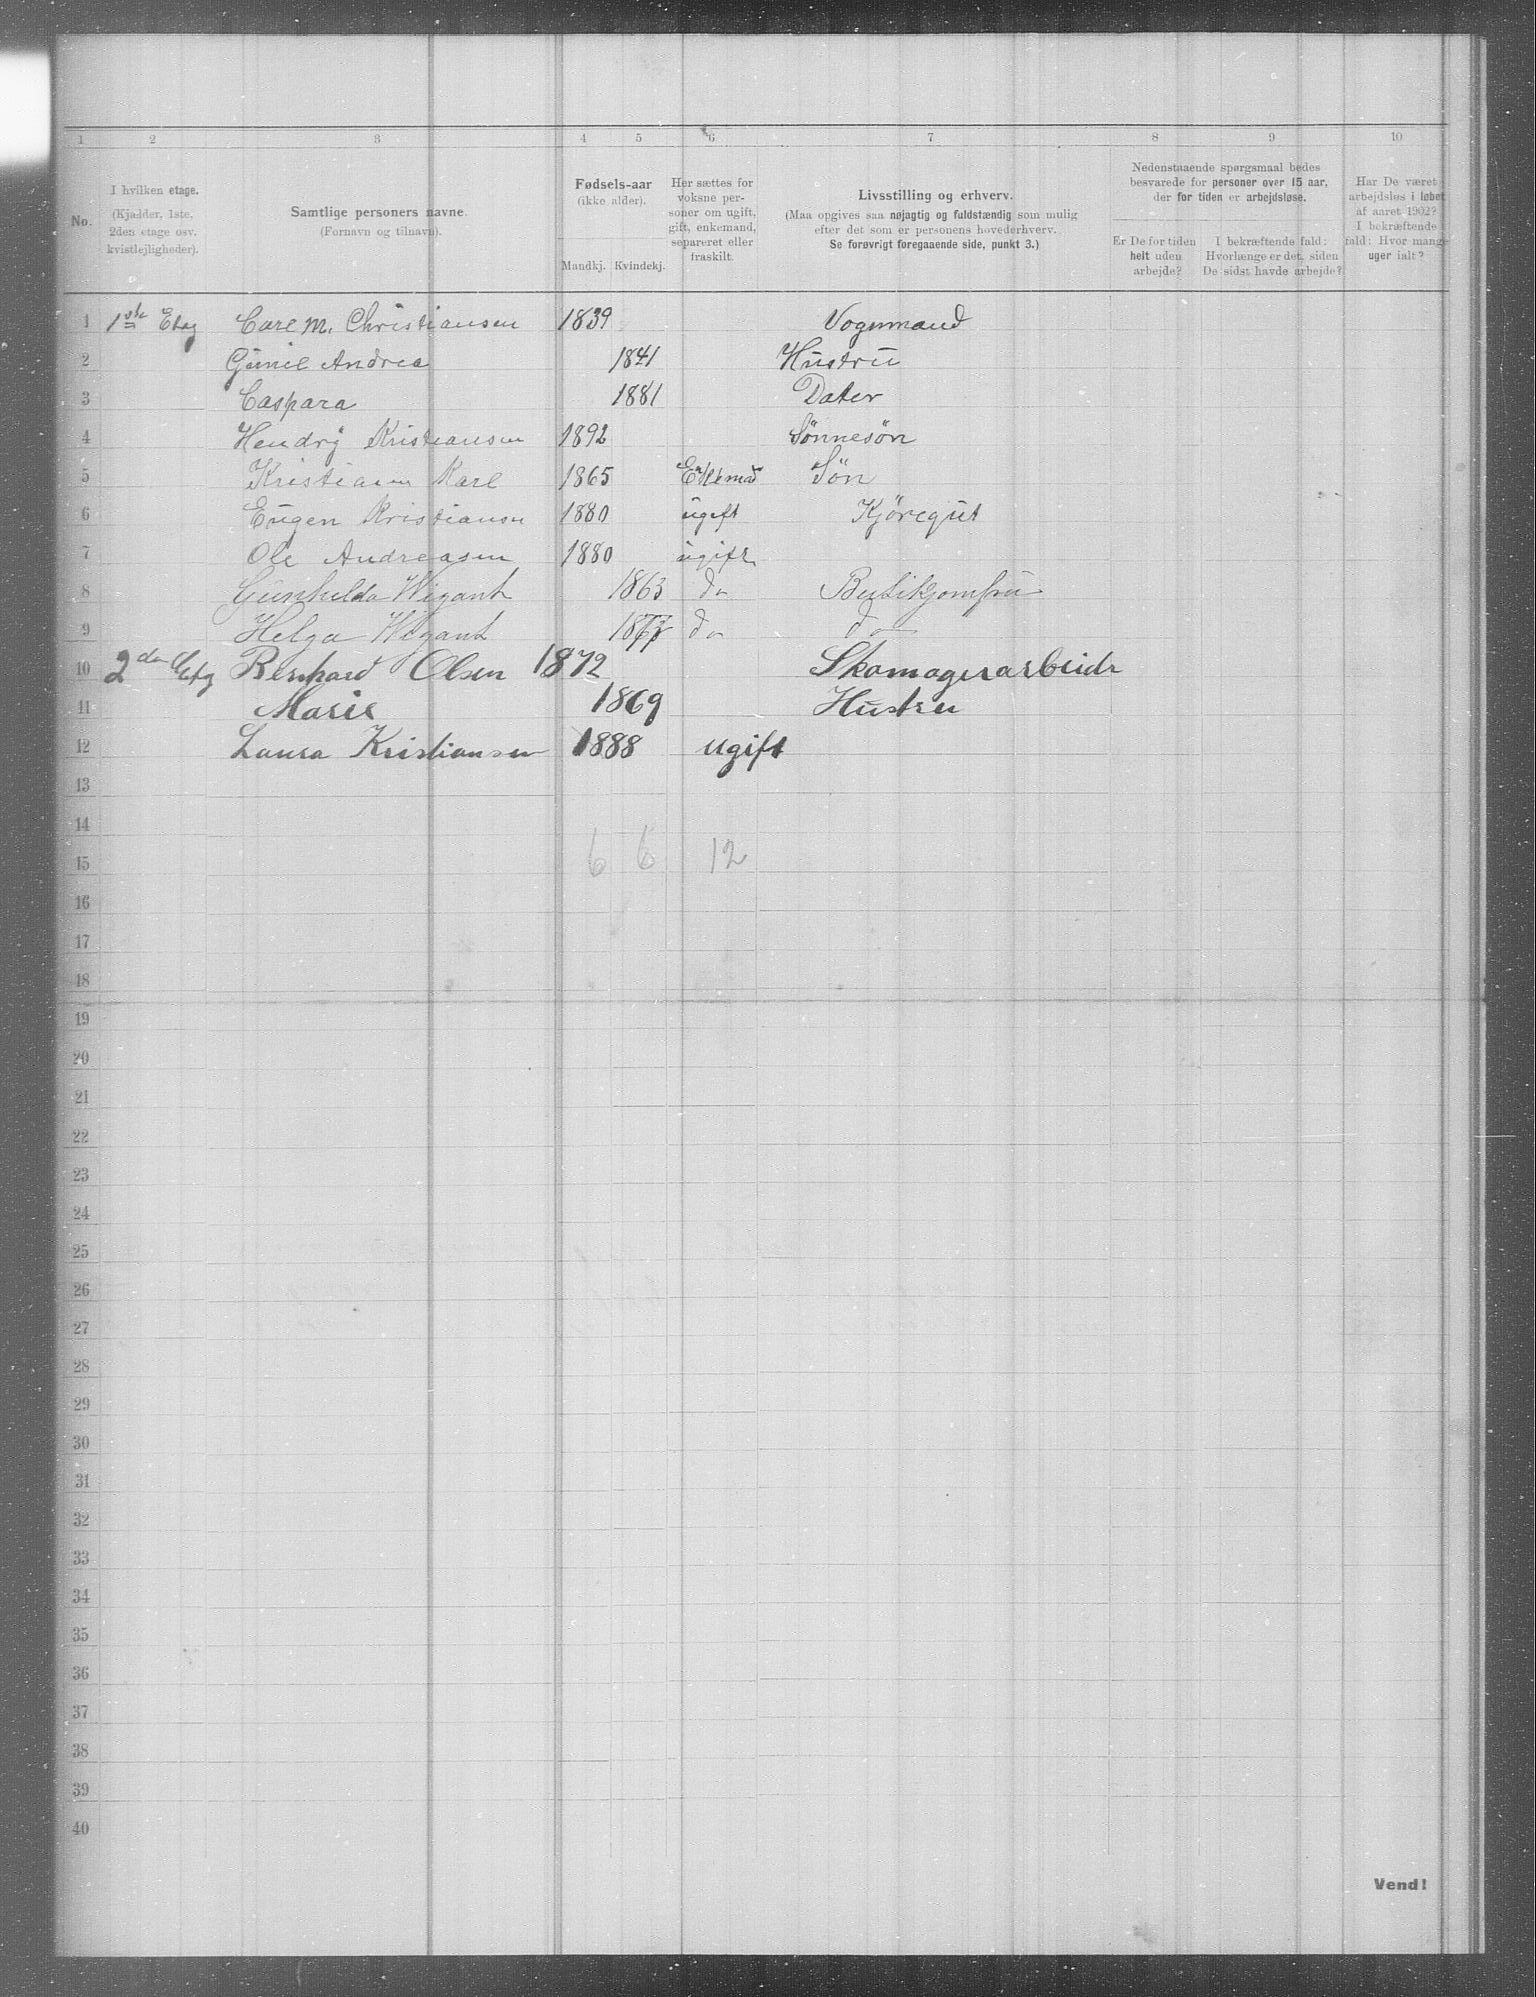 1 2 3 4 5 6 7 8 9 10
No.
I hvilken etage.
(Kjælder, 1ste,
2den etage osv.
kvistlejligheder).
Samtlige personers navne.
(Fornavn og tilnavn).
Fødsels-aar
(ikke alder).
Mandkj. Kvindekj.
Her sættes for
voksne per-
soner om ugift,
gift, enkemand,
separeret eller
fraskilt.
Livsstilling og erhverv.
(Maa opgives saa nøjagtig og fuldstændig som mulig
efter det som er personens hovederhverv.
Se forøvrigt foregaaende side, punkt 3.)
Nedenstaaende spørgsmaal bedes
besvarede for personer over 15 aar,
der for tiden er arbejdsløse.
Er De for tiden
helt uden
arbejde?
I bekræftende fald:
Hvorlænge er det, siden
De sidst havde arbejde?
Har De været
arbejdsløs i løbet
af aaret 1902?
I bekræftende
fald: Hvor mange
uger ialt?
1 1ste Etag Carl M. Christiansen 1839 Vognmand
2 Gunil Andrea 1841 Hustru
3 Caspara 1881 Dater
4 Hendrÿ Kristiansen 1892 Sönnesön
5 Kristiansen Karl 1865 Enkemd Sön
6 Eugen Kristiansen 1880 ugift Kjöregut
7 Ole Andreasen 1880 ugift
8 Gunhilda Wigant 1863 do Butikjomfru
9 Helga Wigant do do
10 2den Etg Bernhard Olsen 1872 Skomagerarbeidr
11 Marie 1869 Hustru
12 Laura Kristiansen 1888 ugift
13
14
15 6 6 12
16
17
18
19
20
21
22
23
24
25
26
27
28
29
30
31
32
33
34
35
36
37
38
39
40
Vend!